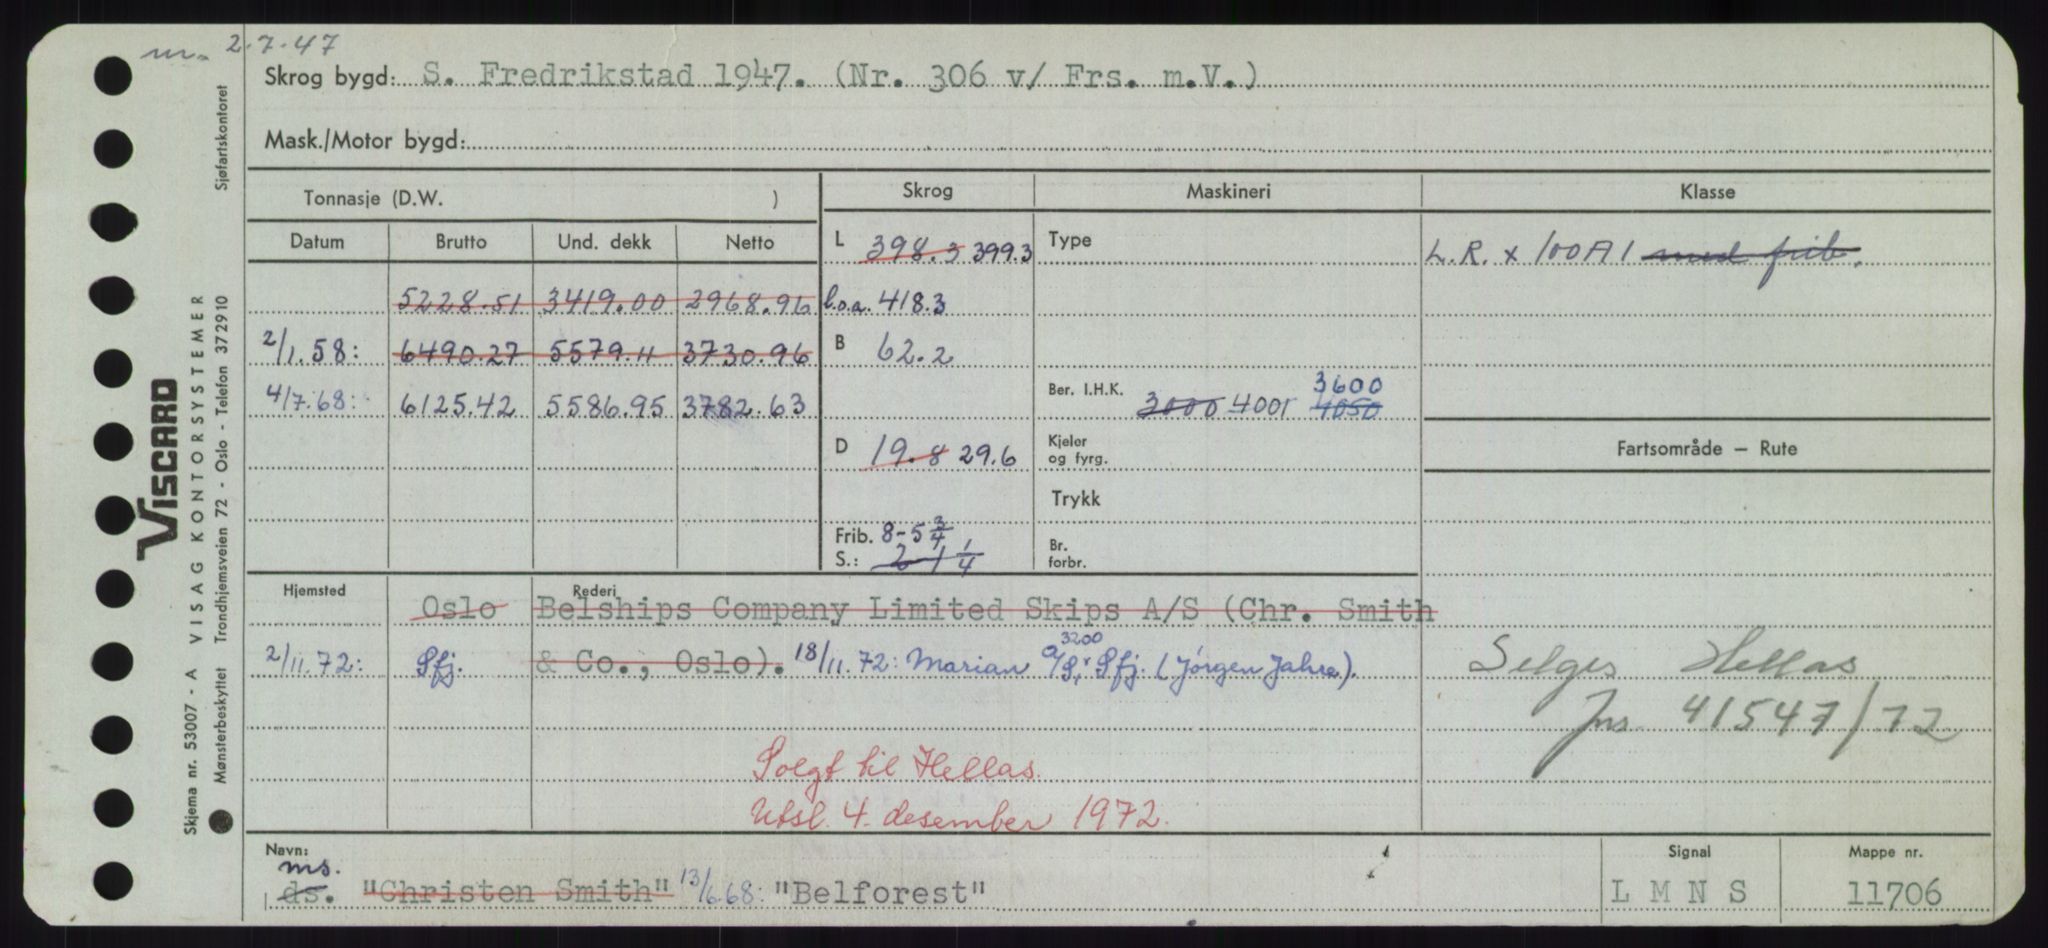 m. 2.7.47
Skrog bygd: S. Fredrikstad 1947. (Nr. 306 v/ Frs. m.V.)
Mask./Motor bygd:
Tonnasje (D.W. )
Skrog
Maskineri
Klasse
Datum Brutto Und. dekk Netto
L 398.3 399.3
Type
L.R. x 100A1 med frib.
5228.51 3419.00 2968.96
l.o.a. 418.3
2/1.58: 6490.27 5579.11 3730.96
B 62.2
4/7.68: 6125.42 5586.95 3782.63
Ber. I.H.K. 3000 4001 4050 3600
D 19.8 29.6
Kjeler og fyrg.
Fartsområde — Rute
Trykk
Frib. 8-5 3/4
S.: 2-1 1/4
Br. forbr.
Hjemsted
Rederi
Oslo Belships Company Limited Skips A/S (Chr. Smith
2/11.72: Sfj. & Co., Oslo). 18/11.72: Marian A/S, 3200 Sfj. (Jörgen Jahre).
Selges Hellas
Jns. 41547/72
Solgt til Hellas.
Utsl. 4. desember 1972.
Navn:
ms.
ds. "Christen Smith" 13/6.68: "Belforest"
Signal
L M N S
Mappe nr.
11706
VISCARD
Skjema nr. 53007 - A VISAG KONTORSYSTEMER
Mønsterbeskyttet Trondhjemsveien 72 - Oslo - Telefon 372910 Sjøfartskontoret